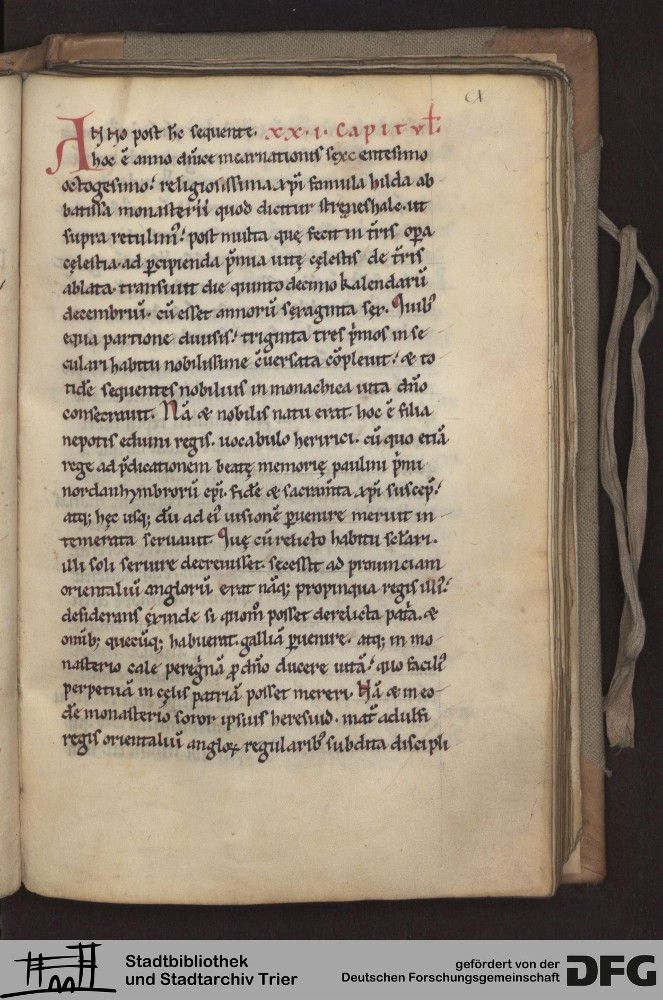 CI
ANNO post hc̄ sequente. XX.I. CapiTVL̄.
hoc ē anno dn̄ice incarnationis sęxcentesimo
octogesimo. religiosissima xp̄i famula hilda ab
batissa monasterii quod dicitur stręneshale. ut
supra retulim᷒. post multa quę fecit in tr̄ris opa
cęlestia. ad ꝑcipienda p̄mia uitę cęlestis de tr̄ris
ablata. transiuit die quinto decimo kalendarū
decembriū. cū esset annorū sęxaginta sex. Quib᷒
equa partione diuisis. triginta tres p̄mos in se
culari habitu nobilissime cōuersata cōpleuit. & to
tidē sequentes nobilius in monachica uita dn̄o
consecrauit. Nā & nobilis natu erat. hoc ē filia
nepotis eduini regis. uocabulo heririci. cū quo etiā
rege ad p̄dicationem beatę memorię paulini p̄mi
nordanhymbrorū ep̄i. fidē & sacram̄ta xp̄i suscep̄.
atq; hęc usq; dū ad ei᷒ uisionē ꝑuenire meruit in
temerata seruauit. Quę cū relicto habitu sc̄lari.
illi soli seruire decreuisset. secessit ad prouinciam
orientaliū anglorū. erat nāq; propinqua regis illi᷒.
desiderans exinde si quom̄ posset derelicta pat̄a. &
omīb; quecūq; habuerat. galliā ꝑuenire. atq; in mo
nasterio cale peregīnā ꝓ dn̄o ducere uitā. quo facili᷒
perpetuā in cęlis patriā posset mereri. Nā & in eo
dē monasterio soror ipsius heresuid. mat̄ aduulfi
regis orientaliū angloꝝ regularib᷒ subdita discipli
Stadtbibliothek
und Stadtarchiv Trier
gefördert von der
Deutschen Forschungsgemeinschaft
DFG